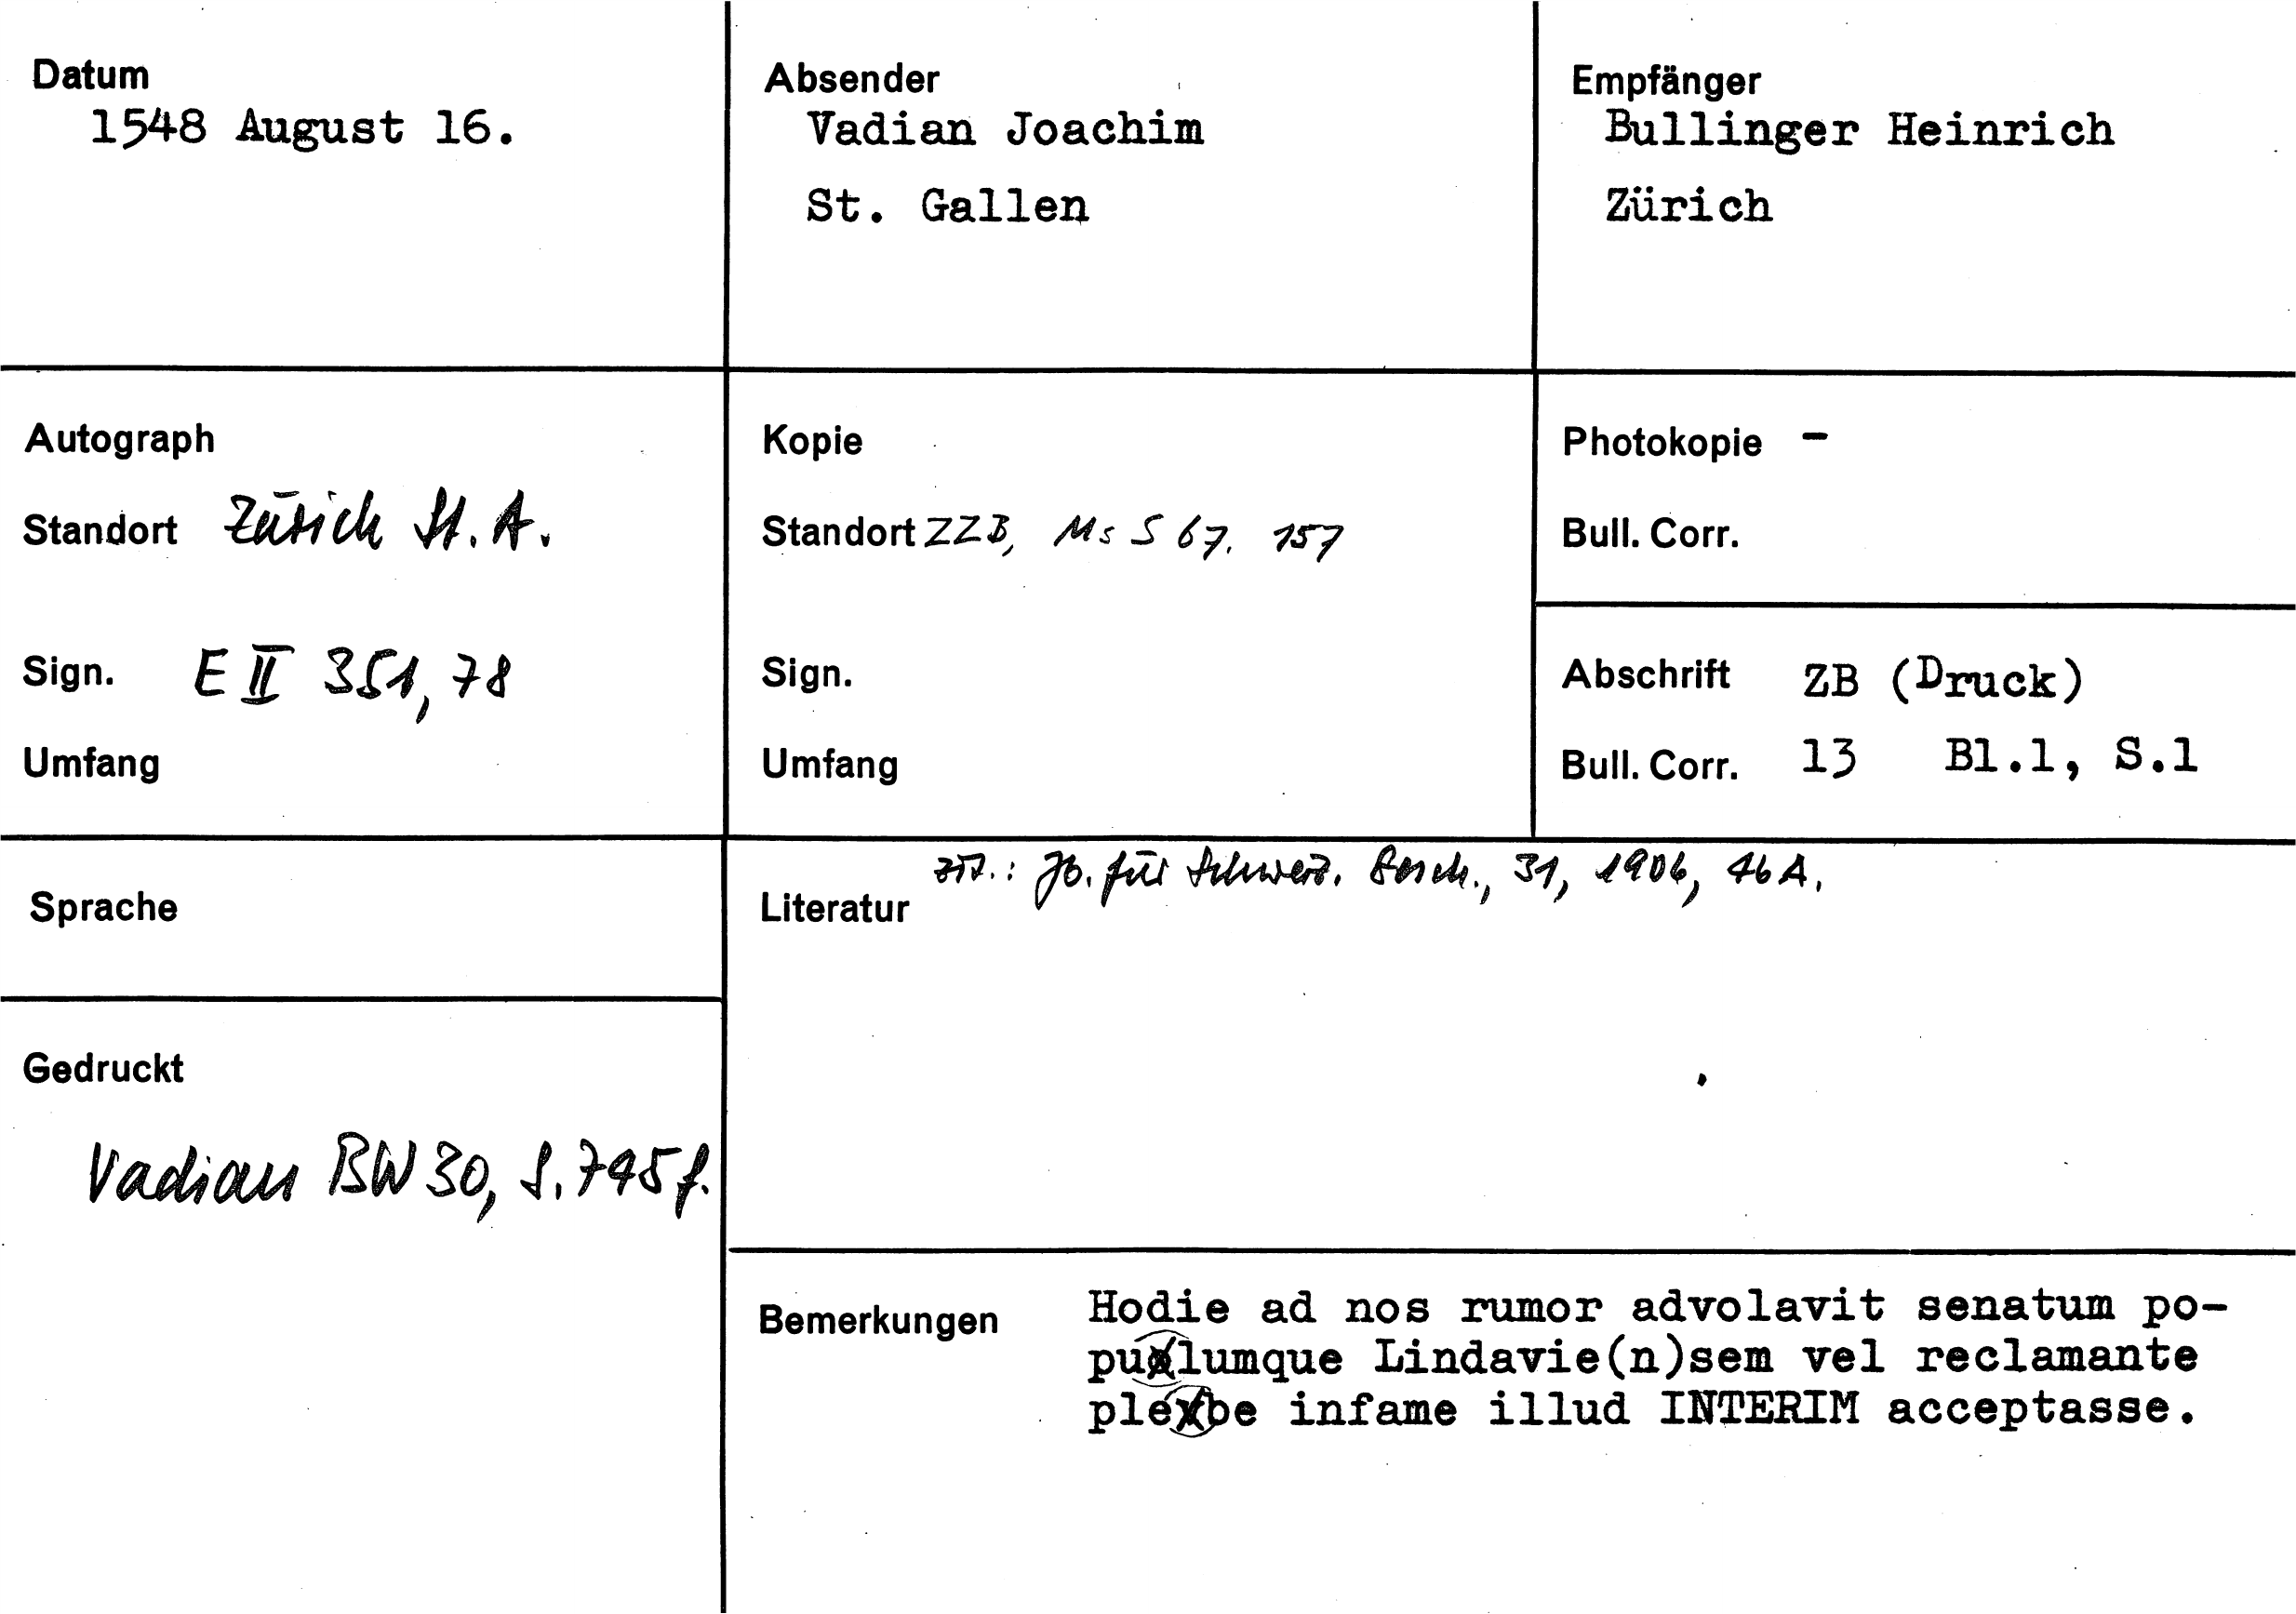 Datum
1548 August 16.
Absender
Vadian Joachim
St. Gallen
Empfänger
Bullinger Heinrich
Zürich
Autograph
Standort Zürich St. A.
Sign. E II 351, 78
Umfang
Kopie
Standort ZZB, Ms S 67. 157
Sign.
Umfang
Photokopie -
Bull. Corr.
Abschrift ZB (Druck)
Bull. Corr. 13 Bl.1, S.1
Sprache
Literatur zit.: Jb. für Schweiz. Gesch., 31, 1906, 46 A.
Gedruckt
Vadian BW 30, S. 745 f.
Bemerkungen Hodie ad nos rumor advolavit senatum po-
pulumque Lindavie(n)sem vel reclamante
plebe infame illud INTERIM acceptasse.